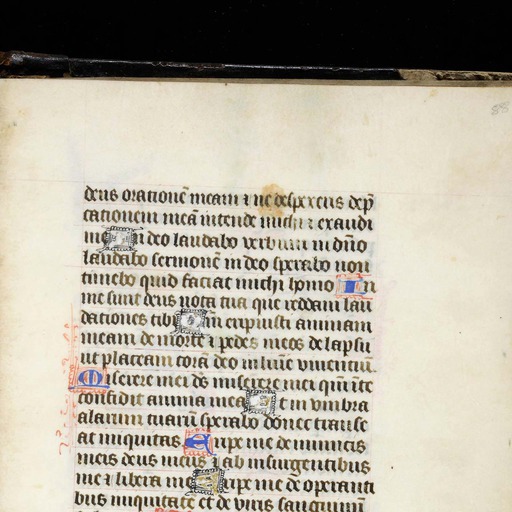 88
deus orationē meam ⁊ ne despexeris dep̄
cationem meā intende michi ⁊ exaudi
me In deo laudabo verbum in dn̄o
laudabo sermonem in deo sperabo non
timebo quid faciat michi homo In
me sunt deus vota tua que reddam lau
dationes tibi Qm̄ eripuisti animam
meam de morte ⁊ pedes meos de lapsu
ut placeam corā deo in lumīe viuentiū.
Miserere mei ds̄ miserere mei qm̄ ī te
confidit anima mea Et in vmbra
alarum tuarū sperabo donec transe
at iniquitas Eripe me de inimicis
meis deus meus ⁊ ab insurgentibus
in me ⁊ libera me Eripe me de operanti
bus iniquitatē et de viris sanguinum